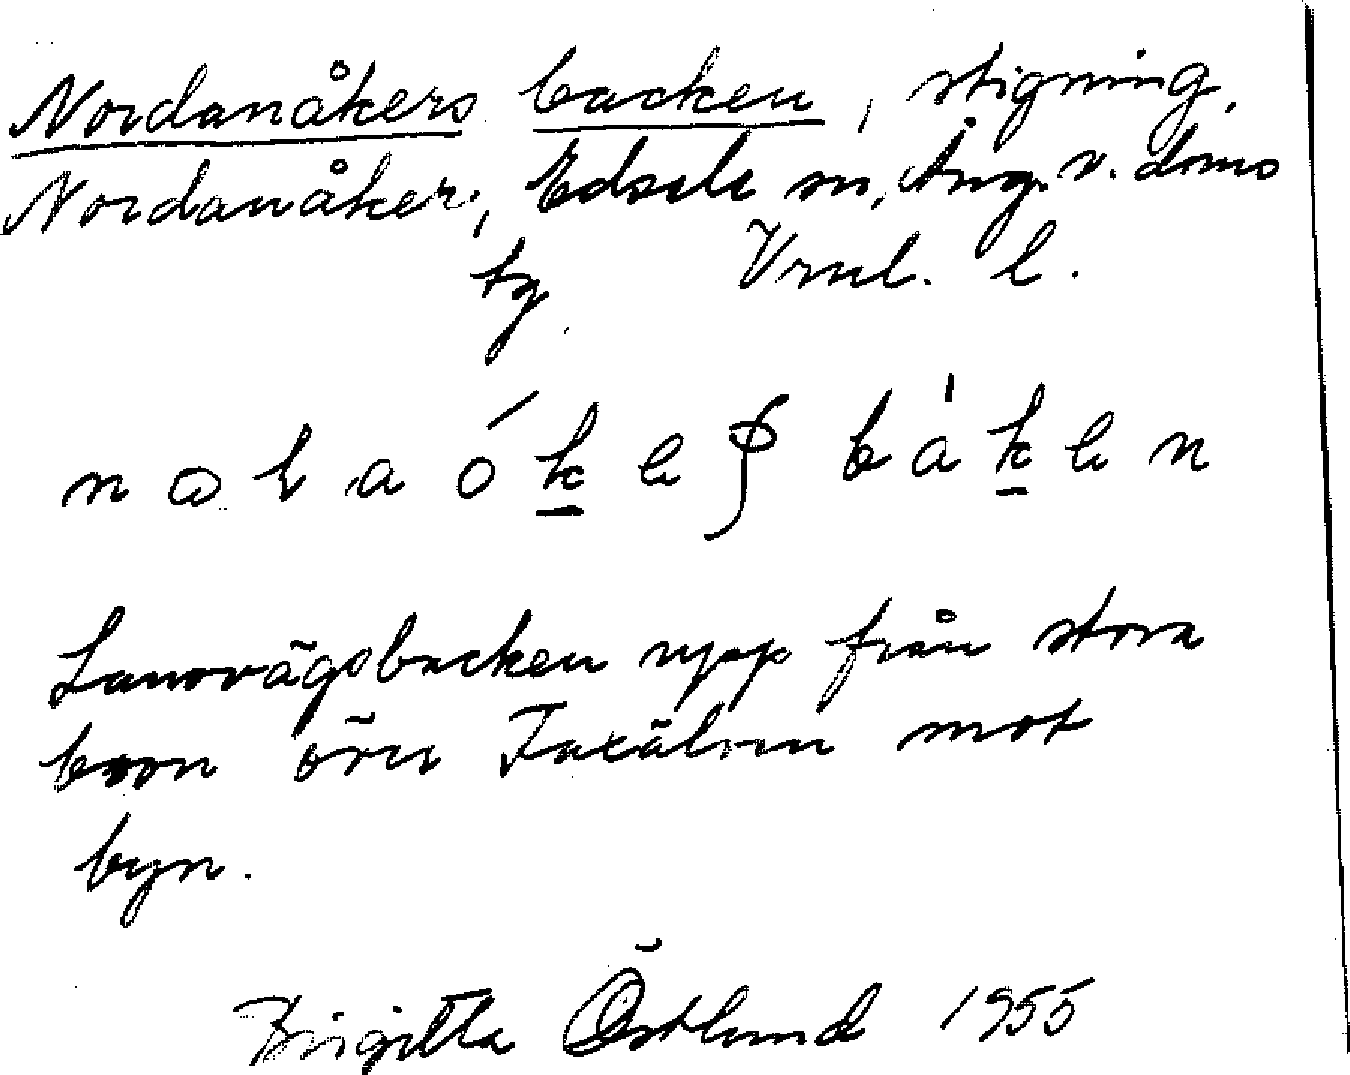 Nordanåkers backen, stigning,
Nordanåker, Edsele sn, Ång. v. doms
tg Vrml. l.
båken
Landvägsbacken upp från stora
bron över Faxälven mot
byn.
Birgitta Östlund 1955